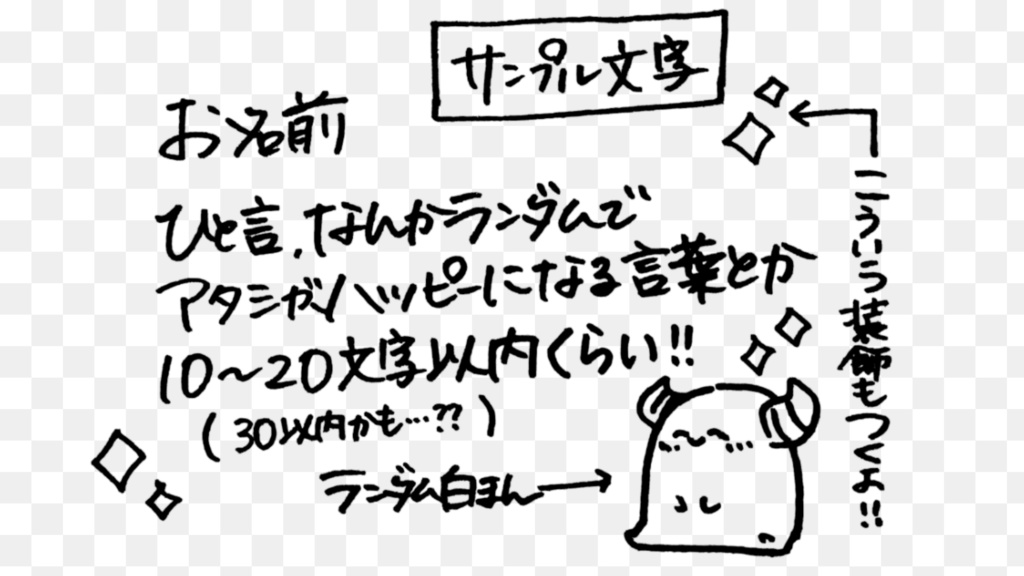 サンプル文字
お名前
ひと言、なんかランダムで
アタシがハッピーになる言葉とか
10〜20文字以内くらい!!
(30以内かも…??)
ランダム白まん
こういう装飾もつくよ!!